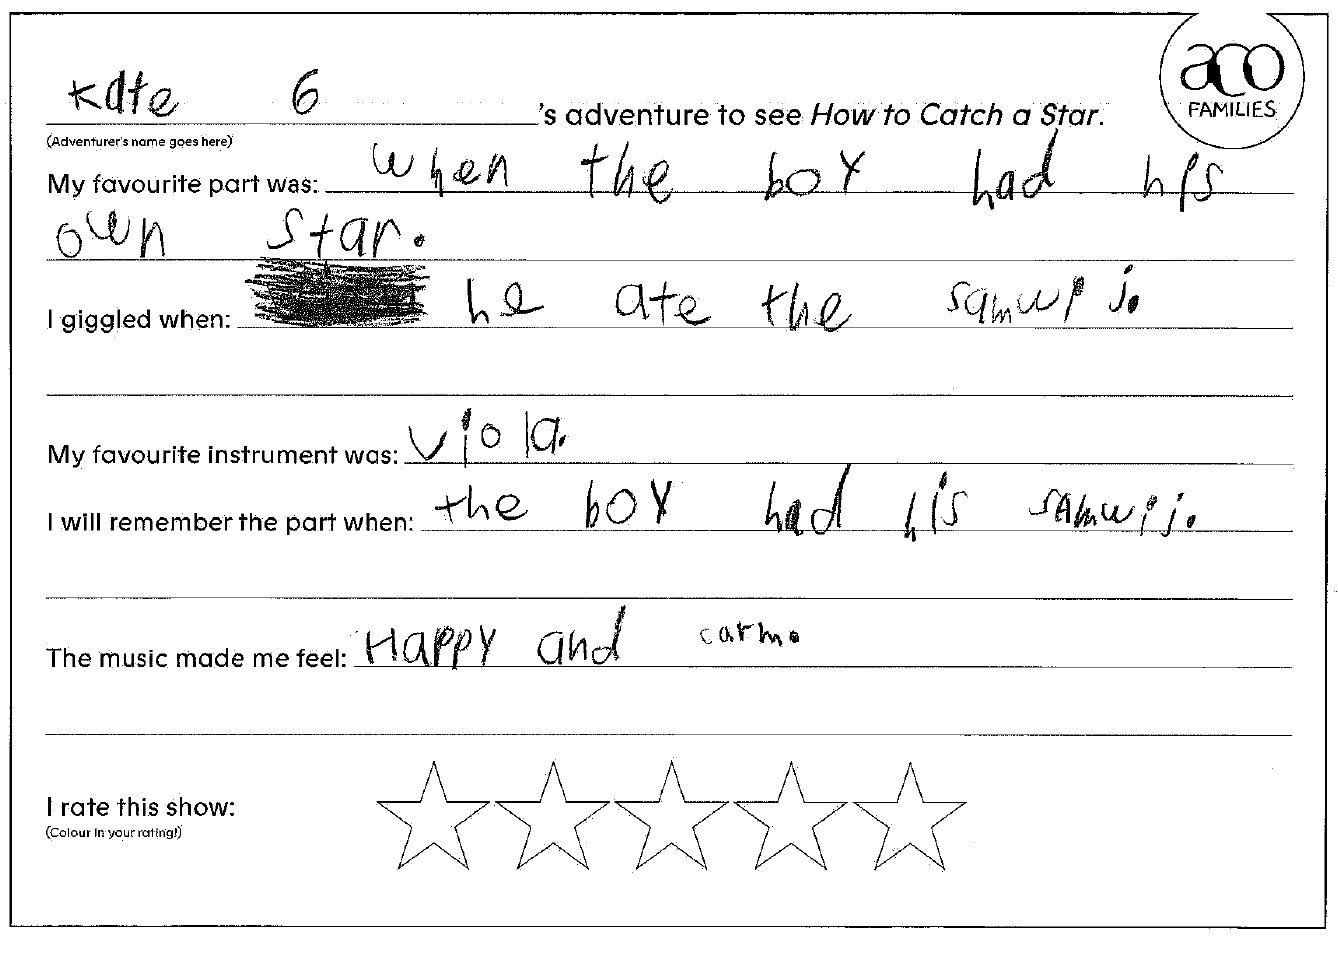 aco
FAMILIES
Kate 6 's adventure to see How to Catch a Star.
(Adventurer's name goes here)
My favourite part was: when the boy had his
own star.
I giggled when: he ate the samwij.
My favourite instrument was: viola.
I will remember the part when: the boy had his samwij.
The music made me feel: Happy and carm.
I rate this show:
(Colour in your rating!)